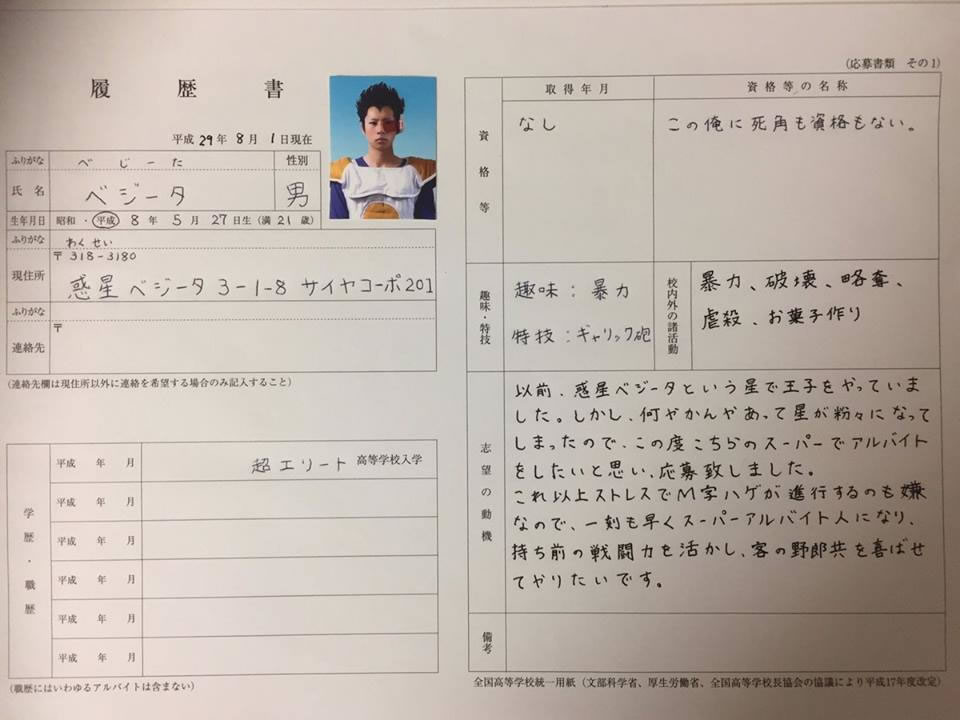 (応募書類 その1)
履歴書
平成29年8月1日現在
ふりがな べじーた 性別
氏名 ベジータ 男
生年月日 昭和・平成 8年 5月 27日生(満21歳)
ふりがな わくせい
〒318-3180
現住所 惑星ベジータ3-1-8 サイヤコーポ201
ふりがな
〒
連絡先
(連絡先欄は現住所以外に連絡を希望する場合のみ記入すること)
学歴・職歴
平成 年 月 超エリート 高等学校入学
平成 年 月
平成 年 月
平成 年 月
平成 年 月
平成 年 月
(職歴にはいわゆるアルバイトは含まない)
資格等
取得年月 資格等の名称
なし この俺に死角も資格もない。
趣味・特技
趣味:暴力
特技:ギャリック砲
校内外の諸活動
暴力、破壊、略奪、
虐殺、お菓子作り
志望の動機
以前、惑星ベジータという星で王子をやっていま
した。しかし、何やかんやあって星が粉々になって
しまったので、この度こちらのスーパーでアルバイト
をしたいと思い、応募致しました。
これ以上ストレスでM字ハゲが進行するのも嫌
なので、一刻も早くスーパーアルバイト人になり、
持ち前の戦闘力を活かし、客の野郎共を喜ばせ
てやりたいです。
備考
全国高等学校統一用紙(文部科学省、厚生労働省、全国高等学校長協会の協議により平成17年度改定)